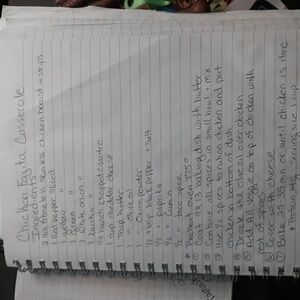 Chicken Fajita Casserole
Ingredients
2 lbs Boneless skin less chicken breast in strips
1 Red Pepper sliced
1 yellow "
1 green "
1 white onion "
1 zucchini "
1/4 cup fresh chopped cilantro
cup shredded cheese
Tbsp butter
" olive oil
" Onion powder
1/2 Tbsp Black Pepper + Salt
1/2 " paprika
1/2 " taco spice
* Preheat oven 375°
① Coat 9x13 baking dish with butter
② Combine all spices in small bowl + mix
③ Use 1/2 spices to cushion chicken and put
chicken in bottom of dish
④ Drizzle the olive oil over chicken
⑤ Add All veggies on top of chicken with
rest of spices
⑥ Cover with cheese
⑦ Bake 35-50 min or until chicken is done